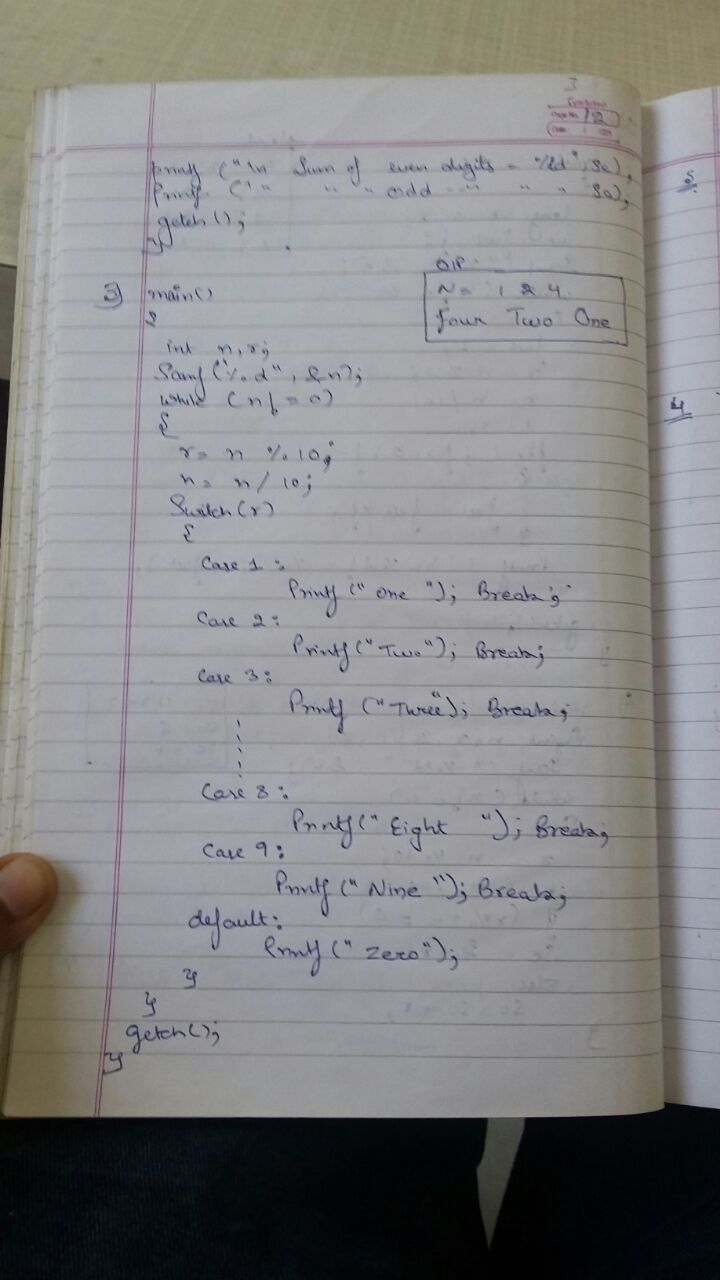 3
Page No. 12
Date
printf ("\n Sum of even digits = %d", Se),
Printf ("\n " " odd " " " So),
getch();
}
O/P
N = 124.
four Two One
3) main()
{
int n, r;
Scanf("%d", &n);
while (n!=0)
{
r= n %10;
n= n/10;
Switch(r)
{
Case 1:
Printf (" one "); Break;
Case 2:
Printf("Two"); Break;
Case 3:
Printf ("Three"); Break;
Case 8:
Printf(" Eight "); Break;
Case 9:
Printf (" Nine "); Break;
default:
Printf (" Zero");
}
}
getch();
}
5.
4